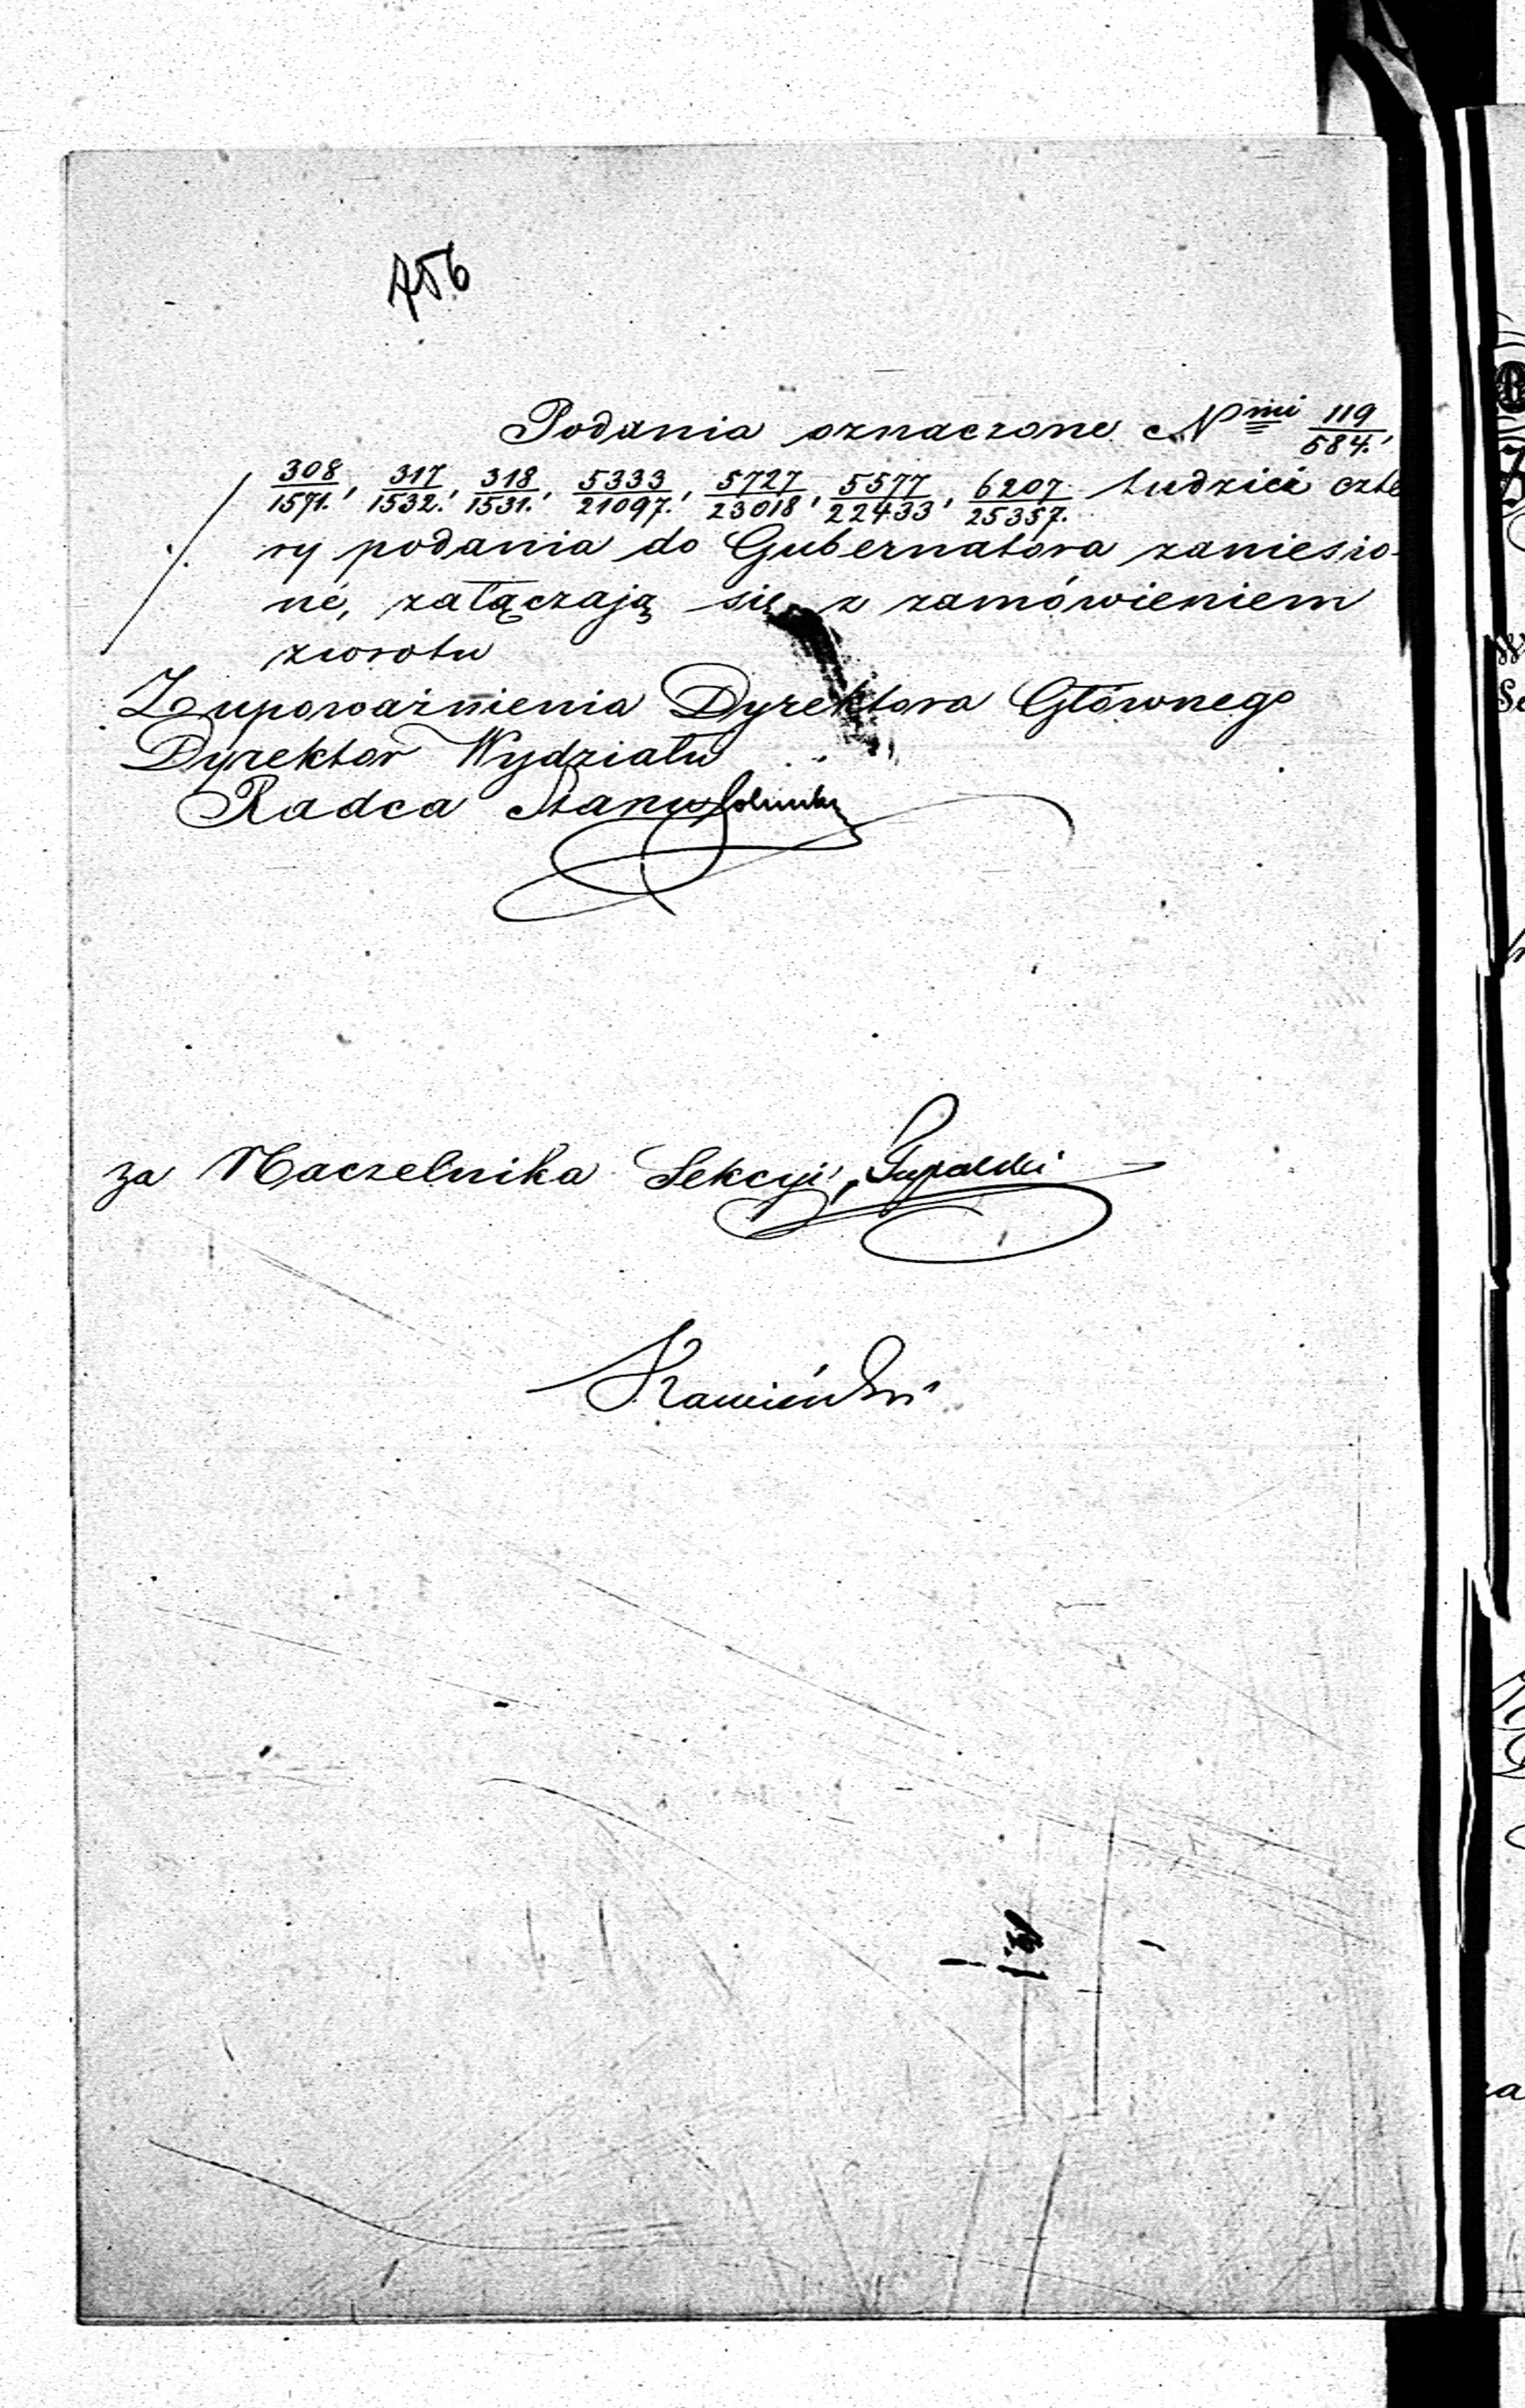 756
Podania oznaczone N<sup>mi</sup> 119/584.,
308/1571., 317/1532., 318/1531., 5333/21097., 5727/23018, 5577/22433, 6207/25357. tudzież czte
ry podania do Gubernatora zaniesio-
né, załączają się z zamówieniem
zwrotu
Z upoważnienia Dyrektora Głównego
Dyrektor Wydziału
Radca Stanu
za Naczelnika Sekcyi,
Kamiński